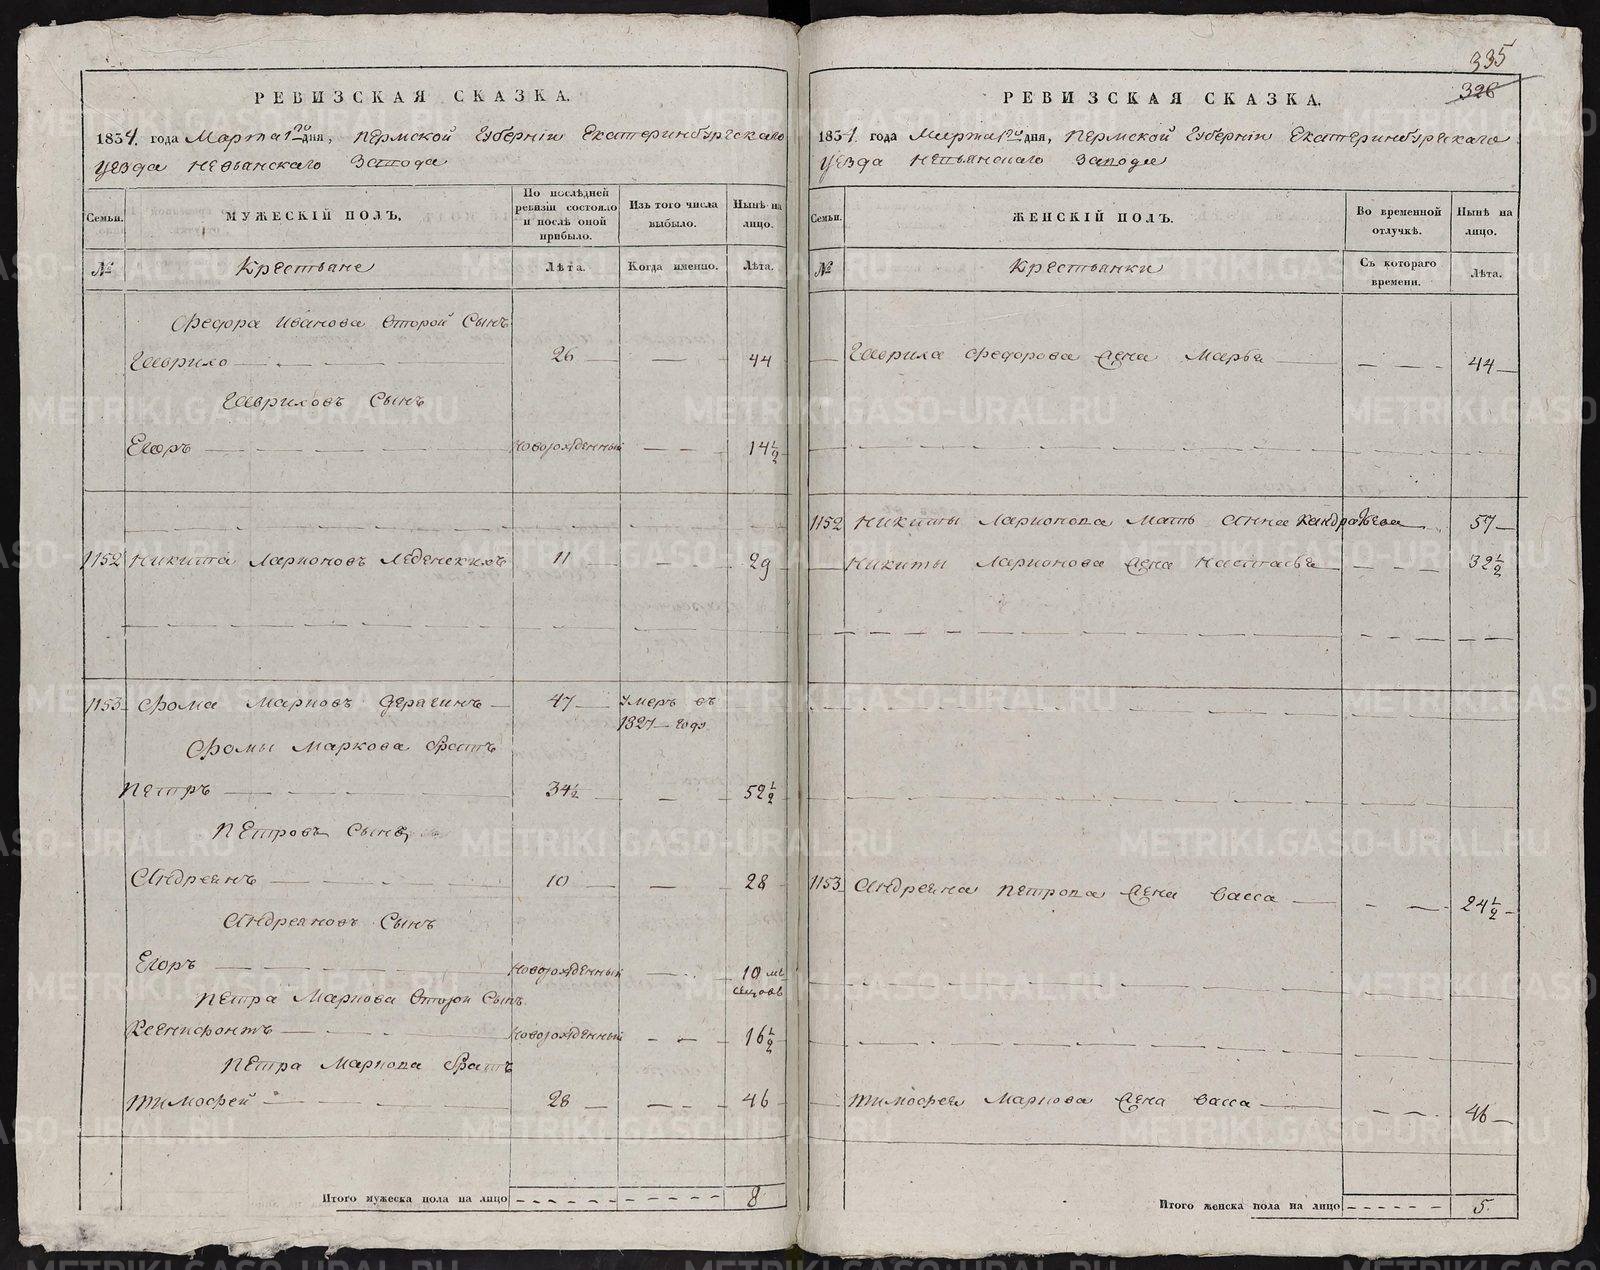 РЕВИЗСКАЯ СКАЗКА.
1834. года Марта 1го дня, Пермской Губерніи Екатеринбургскаго
уезда Невьянскаго Завода
Семьи.
МУЖЕСКІЙ ПОЛЪ,
По послѣдней ревизіи состояло и послѣ оной прибыло.
Изъ того числа выбыло.
Нынѣ на лицо.
№
Крестьяне
Лѣта.
Когда именно.
Лѣта.
Федора Иванова второй Сынъ
Гаврило 26 44
Гавриловъ Сынъ
Егоръ Новорожденный 14½
1152 Никита Ларионовъ 11 29
1153 Фома Марковъ 47 умеръ въ
1827 году
Фомы Маркова братъ
Петръ 34½ 52½
Петровъ Сынъ
Андреянъ 10 28
Андреяновъ Сынъ
Егоръ Новорожденный 10 ме
сяцовъ
Петра Маркова второй Сынъ
Ксенифонтъ Новорожденный 16½
Петра Маркова братъ
Тимофей 28 46
Итого мужеска пола на лицо 8
335
328
РЕВИЗСКАЯ СКАЗКА.
1834. года Марта 1го дня, Пермской Губерніи Екатеринбургскаго
уезда Невьянскаго Завода
Семьи.
ЖЕНСКІЙ ПОЛЪ.
Во временной отлучкѣ.
Нынѣ на лицо.
№
Крестьянки
Съ котораго времени.
Лѣта.
Гаврила Федорова жена Марья 44
1152 Никиты Ларионова мать Анна Кандратьева 57
Никиты Ларионова жена Настасья 32½
1153 Андреяна Петрова жена Васса 24½
Тимофея Маркова жена Васса 46
Итого женска пола на лицо 5.
METRIKI.GASO-URAL.RU